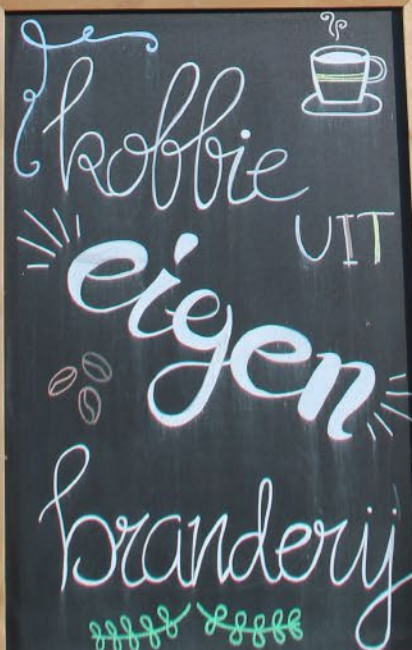 koffie
UIT
eigen
branderij